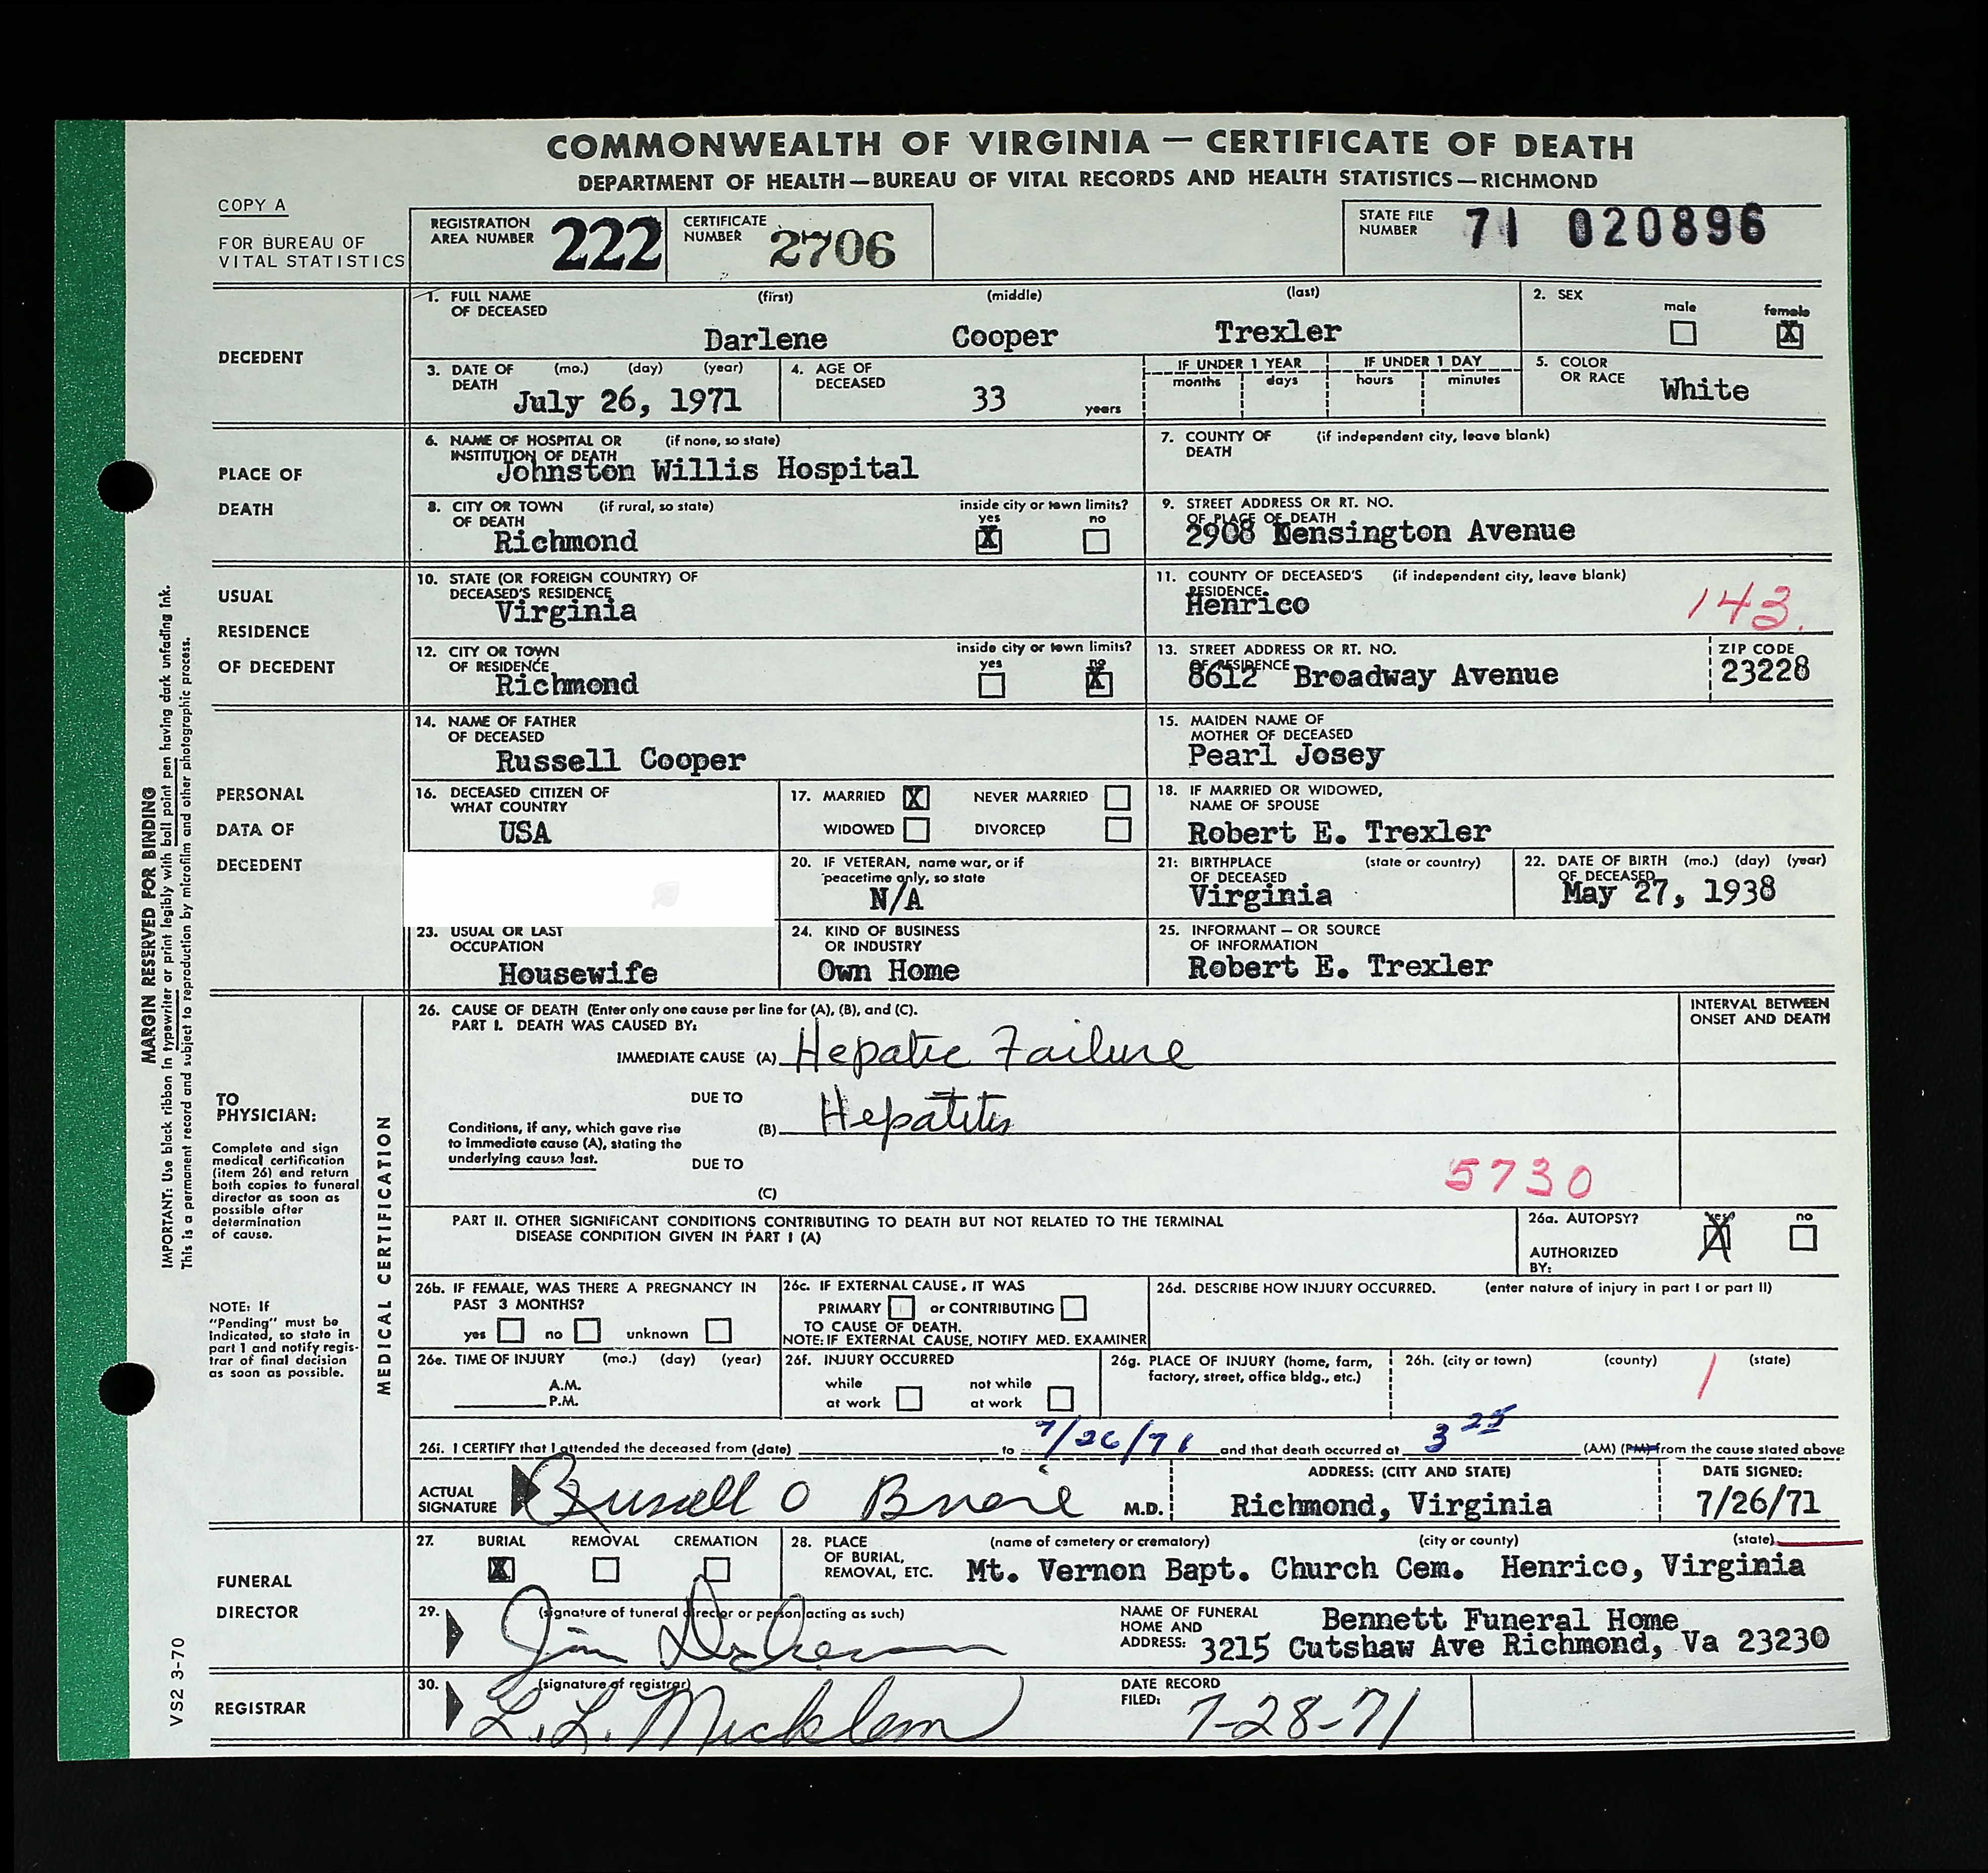 COMMONWEALTH OF VIRGINIA — CERTIFICATE OF DEATH
DEPARTMENT OF HEALTH—BUREAU OF VITAL RECORDS AND HEALTH STATISTICS—RICHMOND
COPY A
FOR BUREAU OF
VITAL STATISTICS
REGISTRATION
AREA NUMBER 222
CERTIFICATE
NUMBER 2706
STATE FILE
NUMBER 71 020896
DECEDENT
1. FULL NAME (first) (middle) (last)
OF DECEASED
Darlene Cooper Trexler
2. SEX
male female
X
3. DATE OF (mo.) (day) (year)
DEATH
July 26, 1971
4. AGE OF
DECEASED
33 years
IF UNDER 1 YEAR IF UNDER 1 DAY
months days hours minutes
5. COLOR
OR RACE White
PLACE OF
DEATH
6. NAME OF HOSPITAL OR (if none, so state)
INSTITUTION OF DEATH
Johnston Willis Hospital
7. COUNTY OF (if independent city, leave blank)
DEATH
8. CITY OR TOWN (if rural, so state) inside city or town limits?
OF DEATH yes no
Richmond X
9. STREET ADDRESS OR RT. NO.
OF PLACE OF DEATH
2908 Kensington Avenue
USUAL
RESIDENCE
OF DECEDENT
10. STATE (OR FOREIGN COUNTRY) OF
DECEASED'S RESIDENCE
Virginia
11. COUNTY OF DECEASED'S (if independent city, leave blank)
RESIDENCE
Henrico
143.
12. CITY OR TOWN inside city or town limits?
OF RESIDENCE yes no
Richmond X
13. STREET ADDRESS OR RT. NO.
OF RESIDENCE
8612 Broadway Avenue
ZIP CODE
23228
PERSONAL
DATA OF
DECEDENT
14. NAME OF FATHER
OF DECEASED
Russell Cooper
15. MAIDEN NAME OF
MOTHER OF DECEASED
Pearl Josey
16. DECEASED CITIZEN OF
WHAT COUNTRY
USA
17. MARRIED X NEVER MARRIED
WIDOWED DIVORCED
18. IF MARRIED OR WIDOWED,
NAME OF SPOUSE
Robert E. Trexler
20. IF VETERAN, name war, or if
peacetime only, so state
N/A
21. BIRTHPLACE (state or country)
OF DECEASED
Virginia
22. DATE OF BIRTH (mo.) (day) (year)
OF DECEASED
May 27, 1938
23. USUAL OR LAST
OCCUPATION
Housewife
24. KIND OF BUSINESS
OR INDUSTRY
Own Home
25. INFORMANT — OR SOURCE
OF INFORMATION
Robert E. Trexler
MARGIN RESERVED FOR BINDING
IMPORTANT: Use black ribbon in typewriter or print legibly with ball point pen having dark unfading ink.
This is a permanent record and subject to reproduction by microfilm and other photographic process.
TO
PHYSICIAN:
Complete and sign
medical certification
(item 26) and return
both copies to funeral
director as soon as
possible after
determination
of cause.
NOTE: If
"Pending" must be
indicated, so state in
part 1 and notify regis-
trar of final decision
as soon as possible.
MEDICAL CERTIFICATION
26. CAUSE OF DEATH (Enter only one cause per line for (A), (B), and (C).
PART I. DEATH WAS CAUSED BY:
INTERVAL BETWEEN
ONSET AND DEATH
IMMEDIATE CAUSE (A) Hepatic Failure
DUE TO
Conditions, if any, which gave rise
to immediate cause (A), stating the
underlying cause last.
(B) Hepatitis
DUE TO
(C)
5730
PART II. OTHER SIGNIFICANT CONDITIONS CONTRIBUTING TO DEATH BUT NOT RELATED TO THE TERMINAL
DISEASE CONDITION GIVEN IN PART I (A)
26a. AUTOPSY? yes no
X
AUTHORIZED
BY:
26b. IF FEMALE, WAS THERE A PREGNANCY IN
PAST 3 MONTHS?
yes no unknown
26c. IF EXTERNAL CAUSE, IT WAS
PRIMARY or CONTRIBUTING
TO CAUSE OF DEATH.
NOTE: IF EXTERNAL CAUSE, NOTIFY MED. EXAMINER
26d. DESCRIBE HOW INJURY OCCURRED. (enter nature of injury in part I or part II)
26e. TIME OF INJURY (mo.) (day) (year)
A.M.
P.M.
26f. INJURY OCCURRED
while not while
at work at work
26g. PLACE OF INJURY (home, farm,
factory, street, office bldg., etc.)
26h. (city or town) (county) (state)
1
26i. I CERTIFY that I attended the deceased from (date) to 7/26/71 and that death occurred at 3 25 (AM) (PM) from the cause stated above
ACTUAL
SIGNATURE Russell O M.D.
ADDRESS: (CITY AND STATE)
Richmond, Virginia
DATE SIGNED:
7/26/71
FUNERAL
DIRECTOR
27. BURIAL REMOVAL CREMATION
X
28. PLACE (name of cemetery or crematory) (city or county) (state)
OF BURIAL,
REMOVAL, ETC. Mt. Vernon Bapt. Church Cem. Henrico, Virginia
29. (signature of funeral director or person acting as such)
Jim
NAME OF FUNERAL
HOME AND
ADDRESS:
Bennett Funeral Home
3215 Cutshaw Ave Richmond, Va 23230
REGISTRAR
30. (signature of registrar)
L. L. Micklem
DATE RECORD
FILED: 7-28-71
VS2 3-70